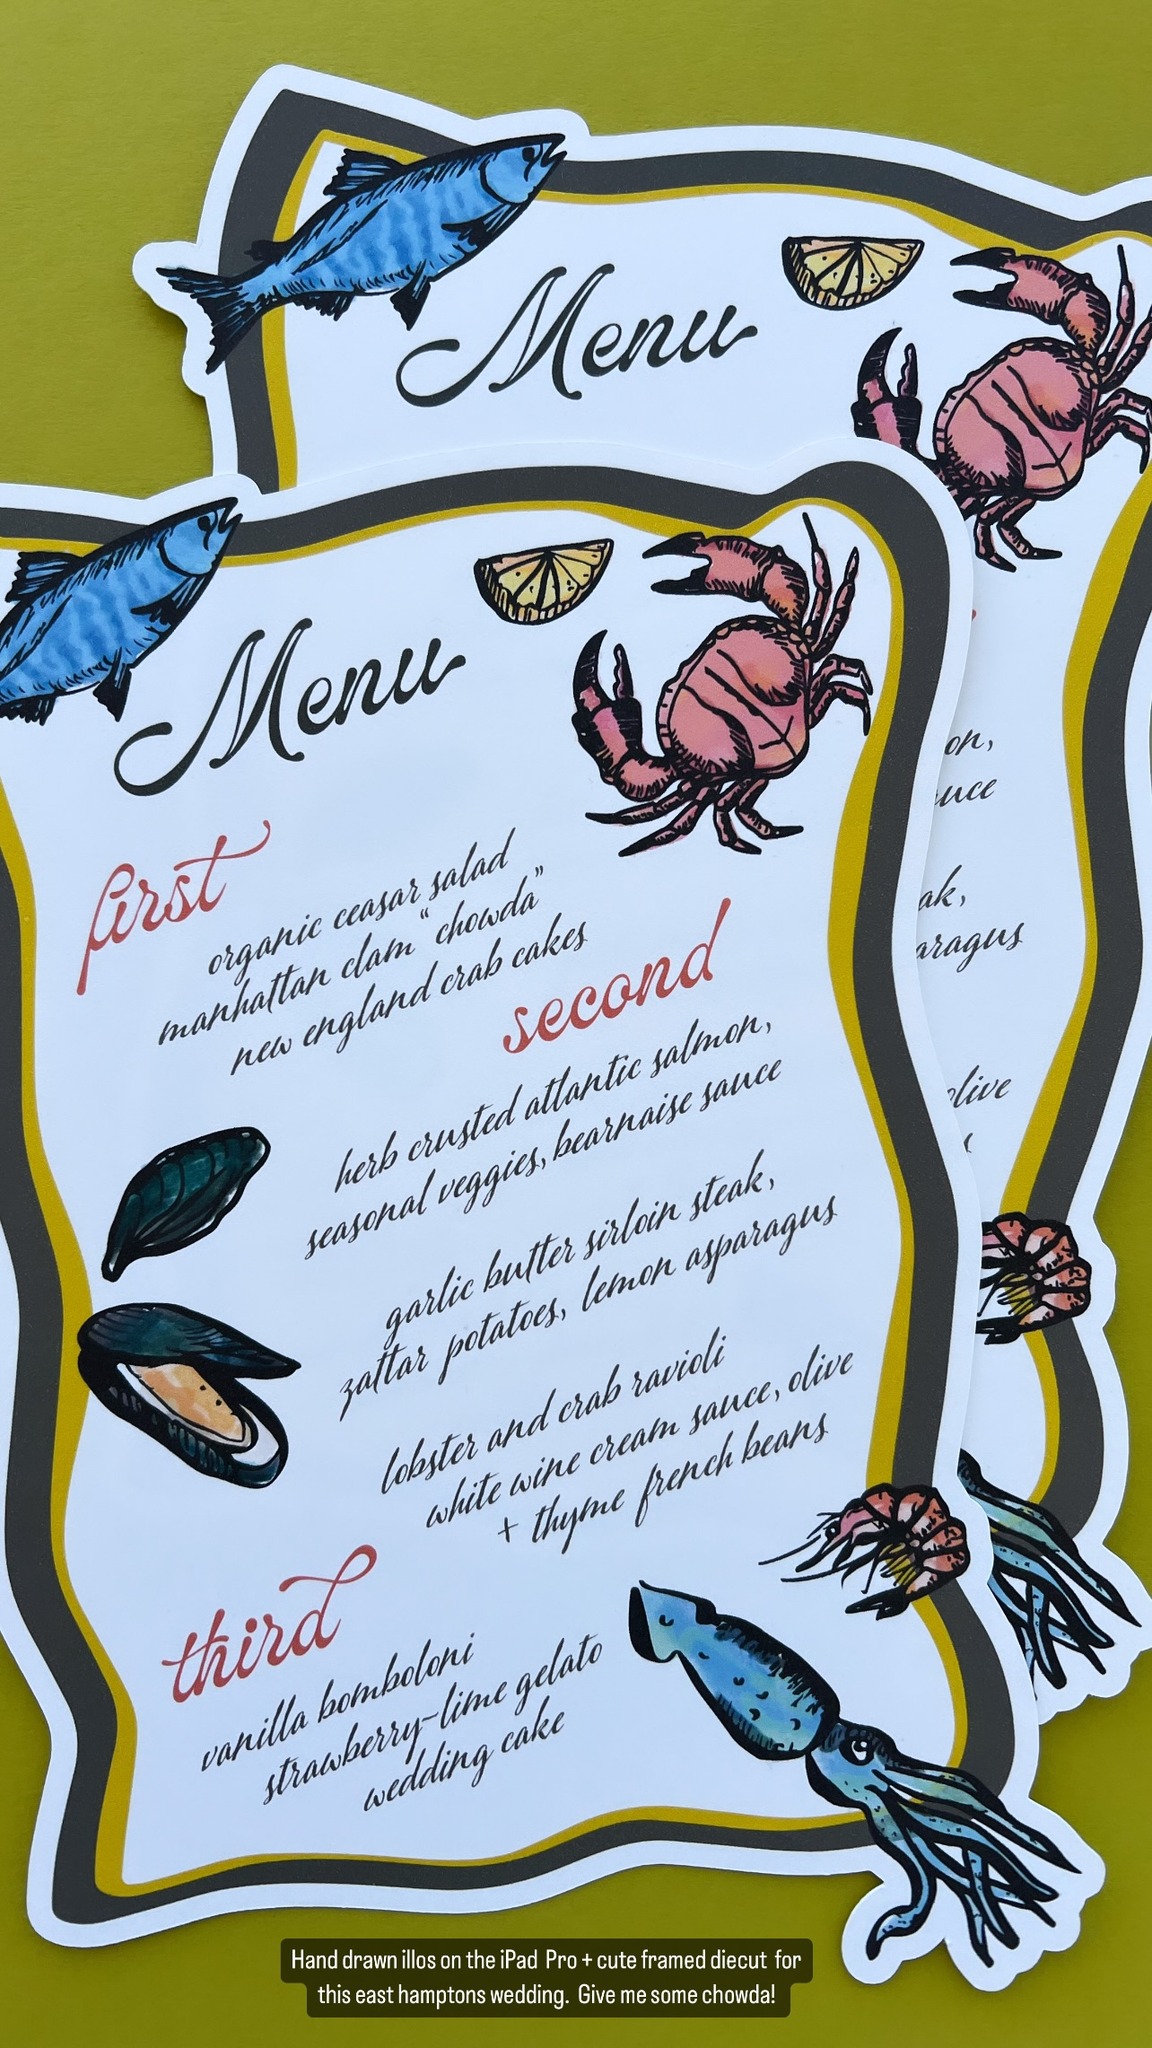 Menu
Menu
first
organic ceasar salad
manhattan clam "chowda"
new england crab cakes
second
herb crusted atlantic salmon,
seasonal veggies, bearnaise sauce
garlic butter sirloin steak,
zattar potatoes, lemon asparagus
lobster and crab ravioli
white wine cream sauce, olive
+ thyme french beans
third
vanilla bomboloni
strawberry-lime gelato
wedding cake
on,
uce
ak,
aragus
olive
Hand drawn illos on the iPad Pro + cute framed diecut for
this east hamptons wedding. Give me some chowda!